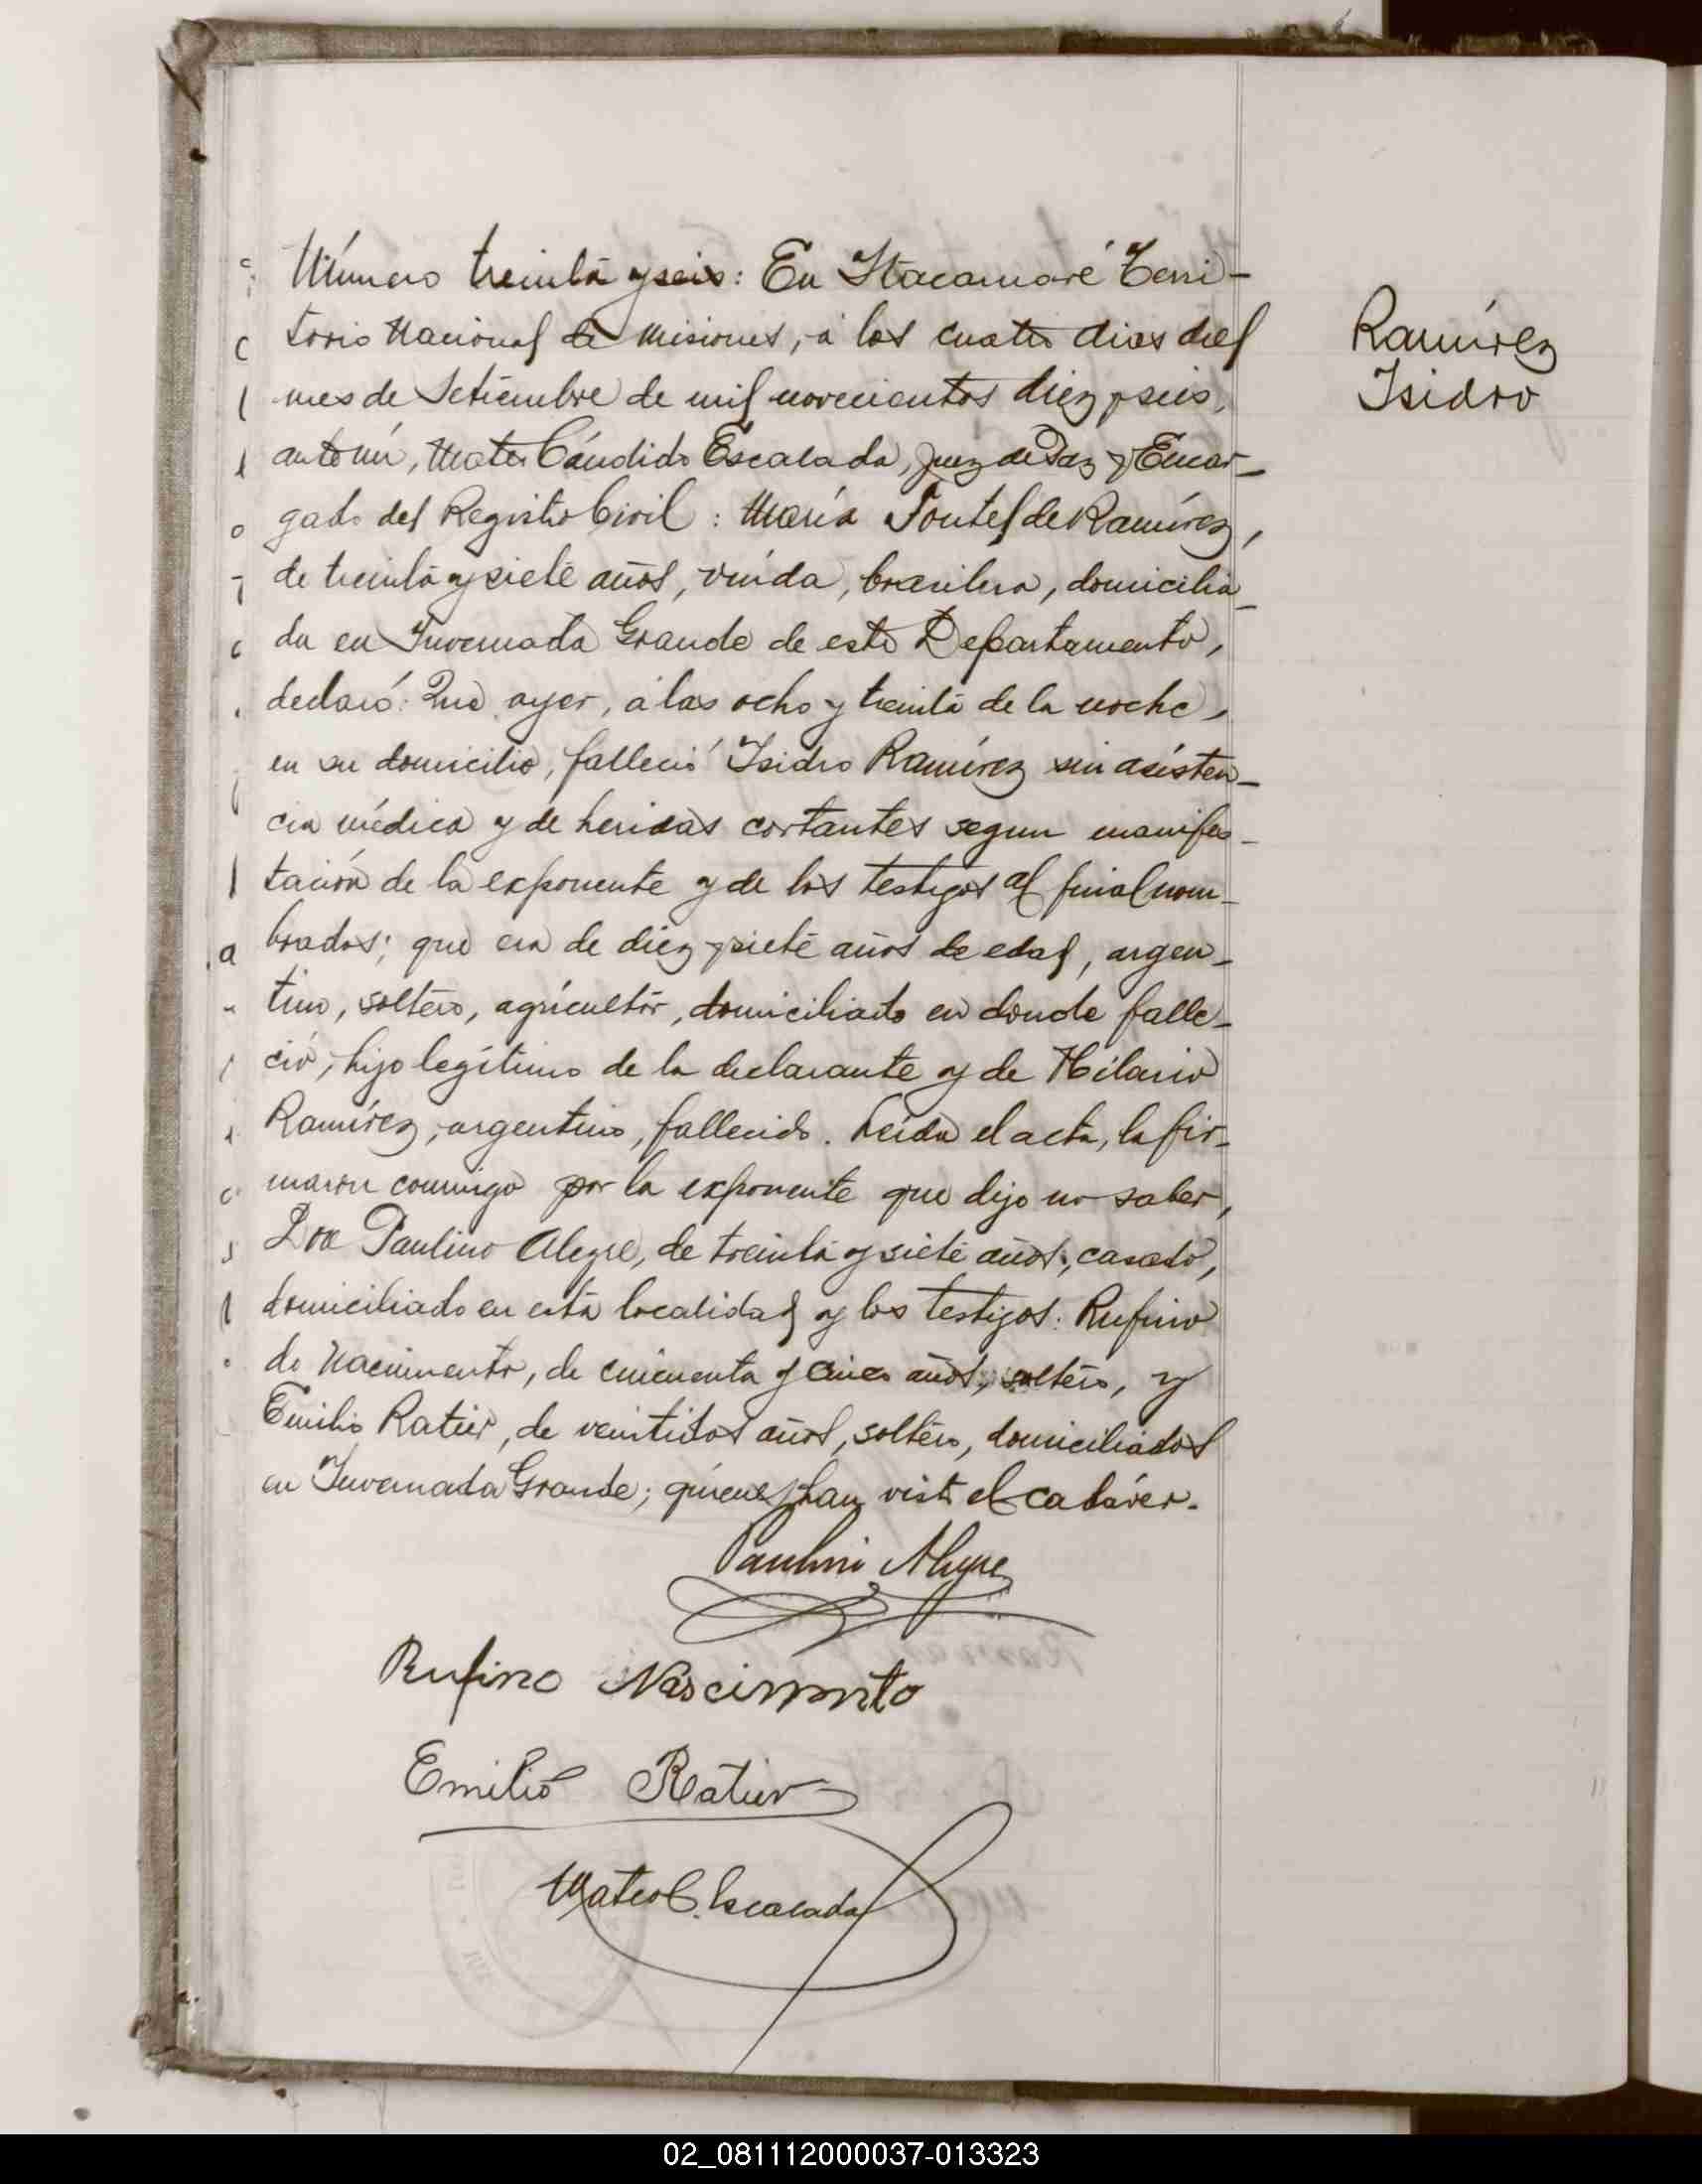 Número treinta y seis: En Itacaruaré Terri-
torio Nacional de Misiones, á los cuatro dias del
mes de Setiembre de mil novecientos diez y seis,
ante mí, Mateo Cándido Escalada, Juez de Paz y Encar-
gado del Registro Civil: María Foutel de Ramírez,
de treinta y siete años, viuda, brasilera, domicilia-
da en Invernada Grande de este Departamento,
declaró: Que ayer, á las ocho y treinta de la noche,
en su domicilio, falleció Isidro Ramírez sin asisten-
cia médica y de heridas cortantes segun manifes-
tación de la exponente y de los testigos al final nom-
brados; que era de diez y siete años de edad, argen-
tino, soltero, agricultor, domiciliado en donde falle-
ció, hijo legítimo de la declarante y de Hilario
Ramírez, argentino, fallecido. Leída el acta, la fir-
maron conmigo por la exponente que dijo no saber,
Don Paulino Alegre, de treinta y siete años, casado,
domiciliado en esta localidad y los testigos: Rufino
do Nacimento, de cincuenta y cinco años, soltero, y
Emilio Ratier, de veintidos años, soltero, domiciliados
en Invernada Grande; quienes han visto el cadáver.
Paulino Alegre
Rufino Nascimento
Emilio Ratier
Mateo C. Escalada
Ramírez
Isidro
02_081112000037-013323